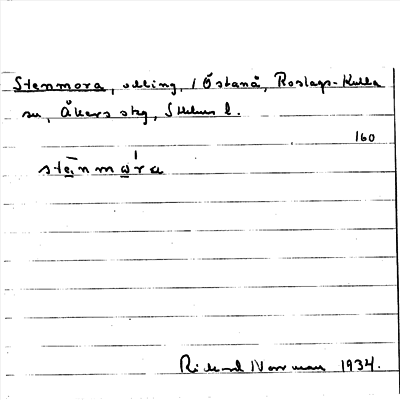 Stenmora, utting, / Östanå, Roslags-Kulla
sn, Åkers skg, Sthlms l.
160
stēnmo̱ra
Rickard Norrman 1934.